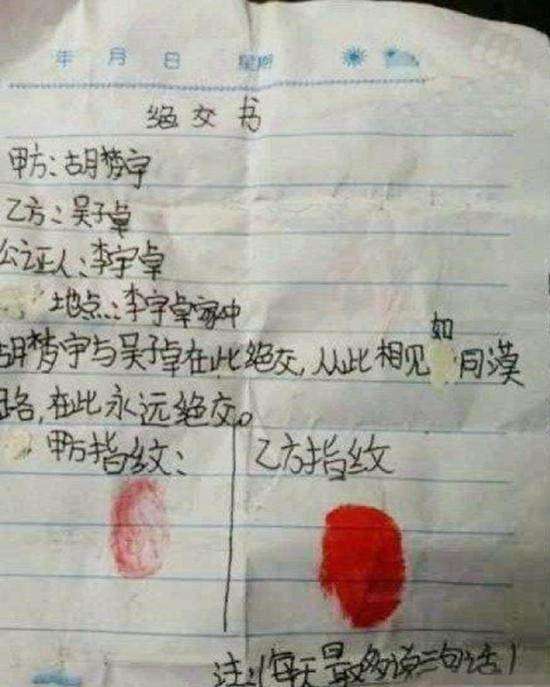 年 月 日 星期
绝交书
甲方:胡梦宇
乙方:吴子卓
公证人:李宇卓
地点:李宇卓家中
胡梦宇与吴子卓在此绝交,从此相见如同漠
路,在此永远绝交。
甲方指纹: 乙方指纹
注:(每天最多说三句话)